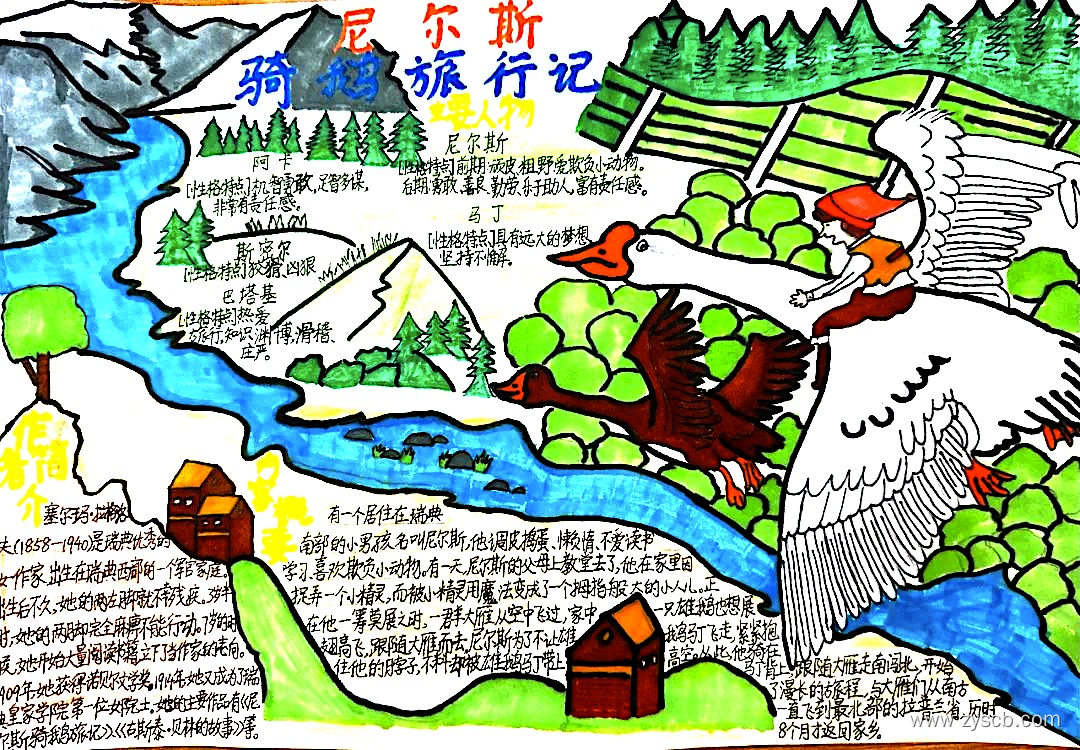 尼尔斯
骑鹅旅行记
主要人物
尼尔斯
[性格特点]前期:顽皮、粗野爱欺负小动物。
后期:勇敢、善良、勤劳、乐于助人,富有责任感。
阿卡
[性格特点]机智勇敢,足智多谋,
非常有责任感。
马丁
[性格特点]具有远大的梦想
坚持不懈。
斯密尔
[性格特点]狡猾、凶狠
巴塔基
[性格特点]热爱
旅行,知识渊博,滑稽、
庄严。
作者简介
塞尔玛·拉格洛
夫(1858-1940)是瑞典优秀的
女作家,出生在瑞典西部的一个军官家庭
出生后不久,她的两左脚就不幸残疾。3岁半
时,她的两脚完全麻痹不能行动。7岁的时
候,她开始大量阅读书籍立下了当作家的志向。
1909年她获得诺贝尔文学奖,1914年她又成为了瑞
典皇家学院第一位女院士,她的主要作品有《尼
尔斯骑鹅旅记》、《古斯泰·贝林的故事》等。
内容概要
有一个居住在瑞典
南部的小男孩名叫尼尔斯,他调皮捣蛋、懒惰、不爱读书
学习、喜欢欺负小动物。有一天,尼尔斯的父母上教堂去了,他在家里因
捉弄一个小精灵,而被小精灵用魔法变成了一个拇指般大的小人儿。正
在他一筹莫展之时,一群大雁从空中飞过,家中一只雄鹅也想展
翅高飞,跟随大雁而去,尼尔斯为了不让雄鹅马丁飞走,紧紧抱
住他的脖子,不料却被雄鹅马丁带上高空。从此,他骑在
马丁背上,跟随大雁走南闯北,开始
了漫长的旅程,与大雁们从南方
一直飞到最北部的拉普兰省,历时
8个月才返回家乡。
www.zyscb.com